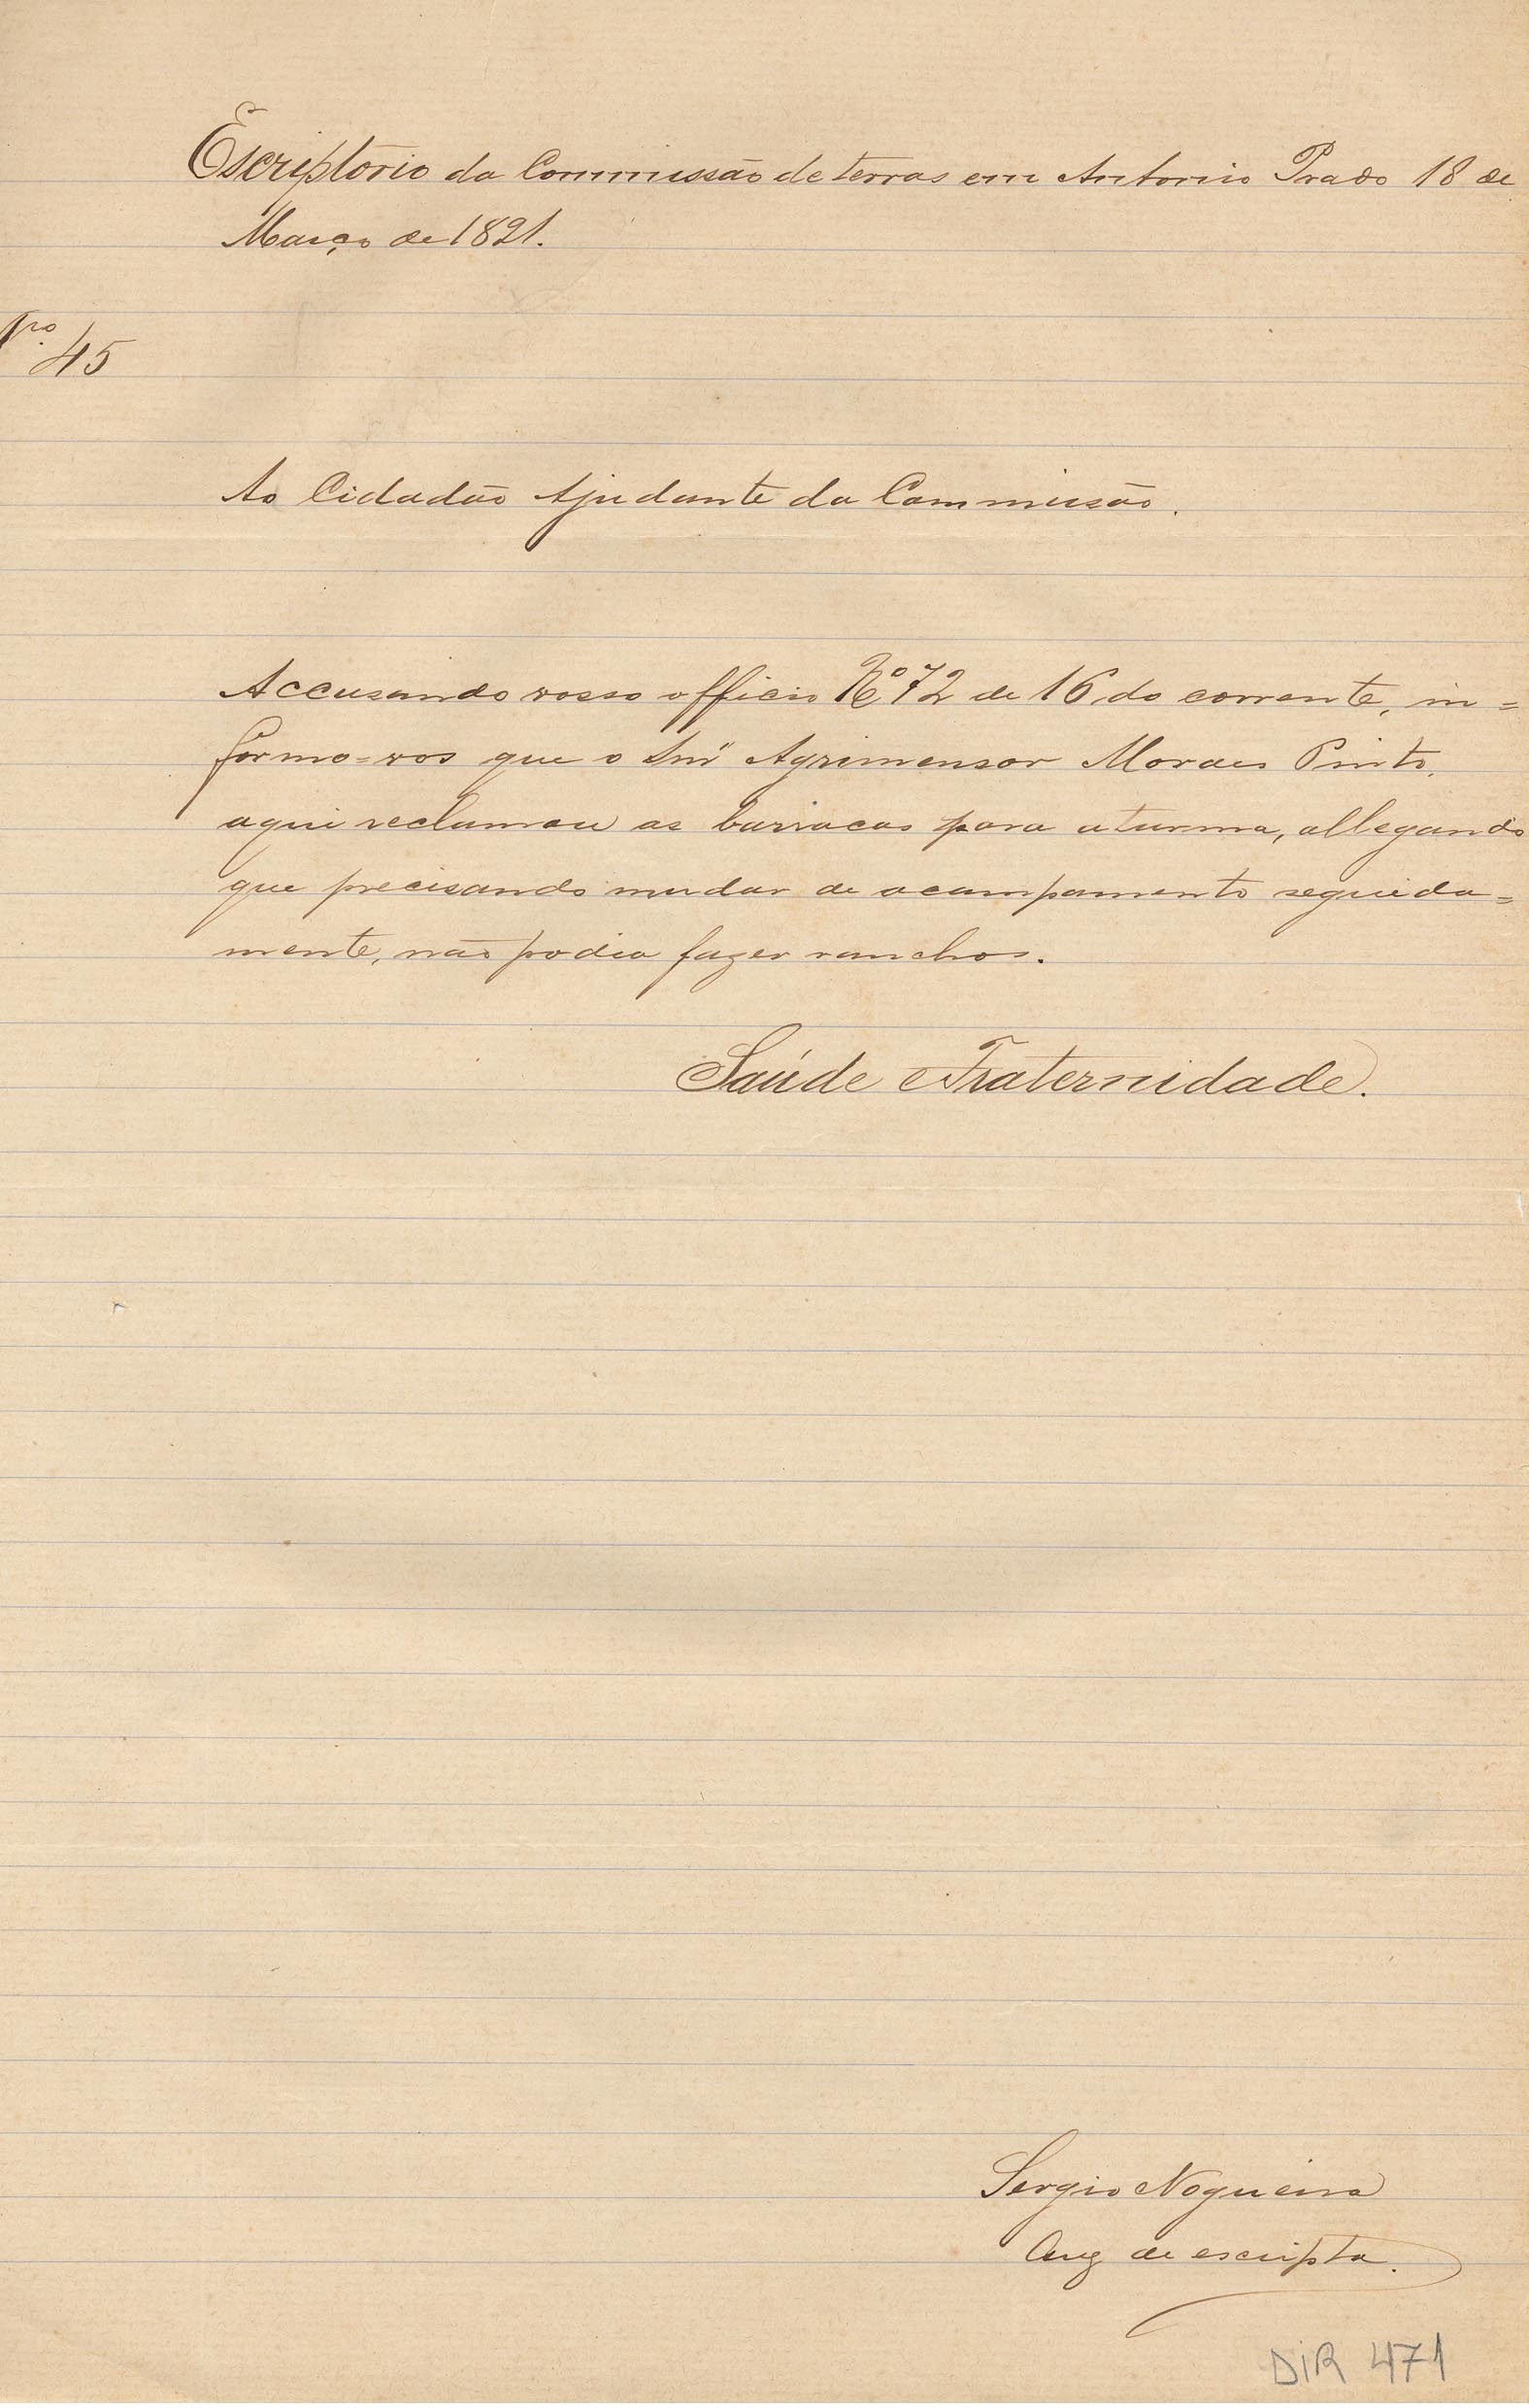 Escriptorio da Commissão de terras em Antonio Prado 18 de
Março de 1891.
Nº 45
Ao Cidadão Ajudante da Commissão.
Accusando vosso officio Nº 72 de 16 do corrente, in=
formo=vos que o Snr Agrimensor Moraes Pinto,
aqui reclamou as barracas para a turma, allegando
que precisando mudar de acampamento seguida=
mente, não podia fazer ranchos.
Saúde e Fraternidade.
Sergio Nogueira
Aux de escripta.
DIR 471